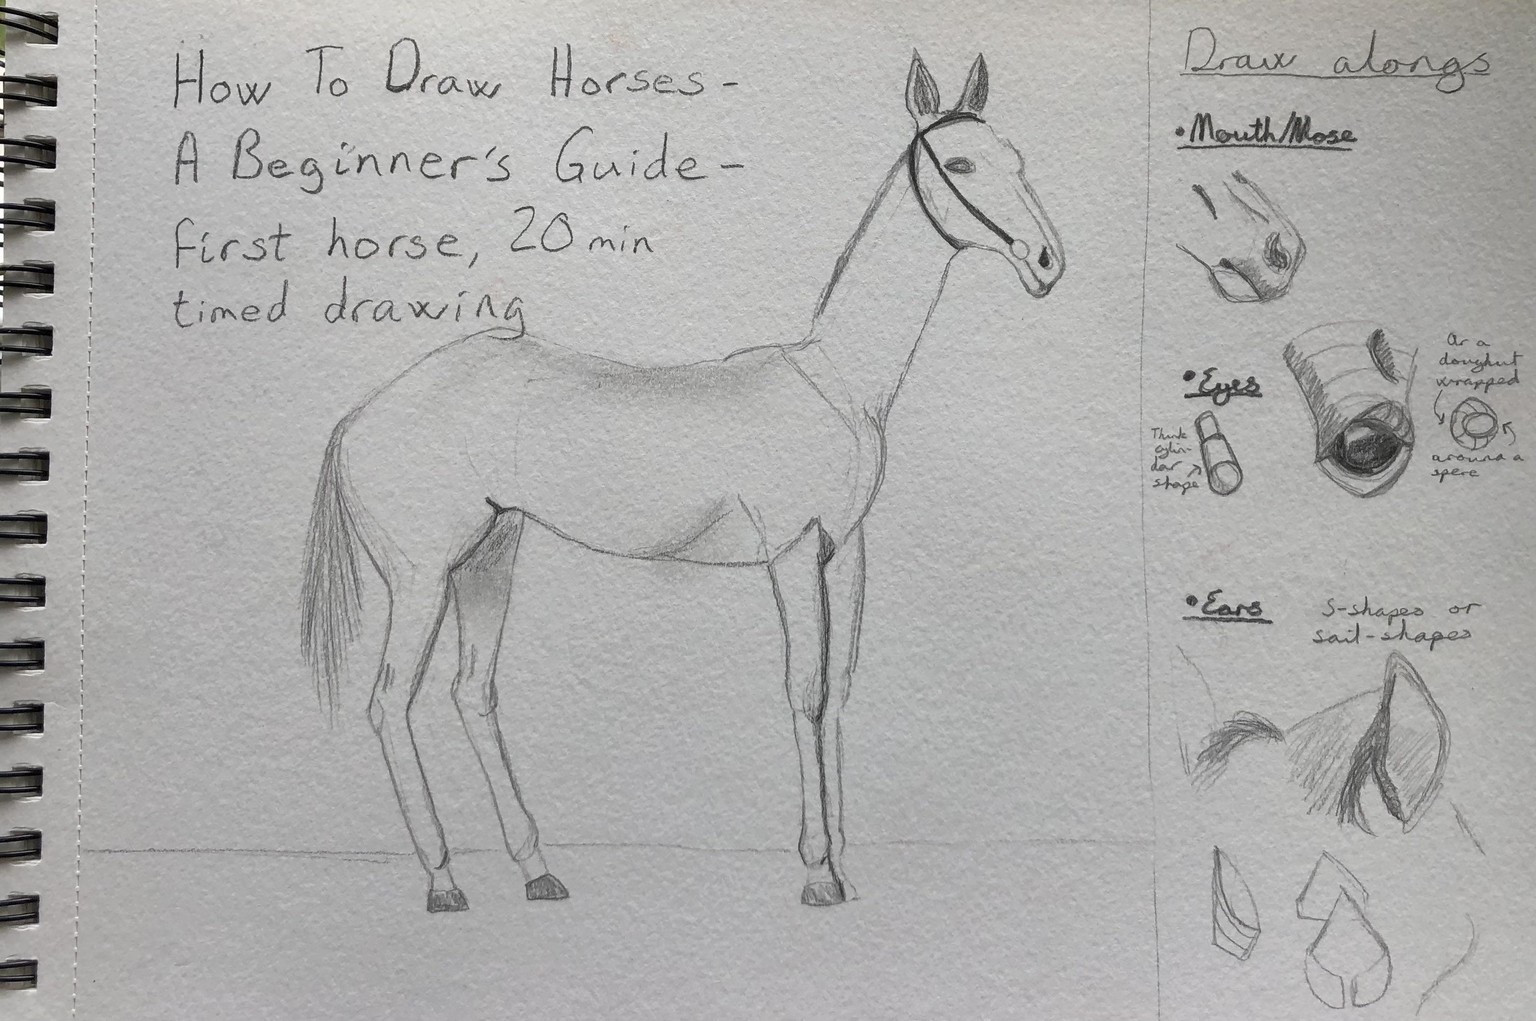 How To Draw Horses-
A Beginner's Guide-
first horse, 20 min
timed drawing
Draw alongs
•Mouth/Nose
•Eyes
Think
cylin-
dar
shape
Or a
doughnut
wrapped
around a
spere
•Ears
S-shapes or
sail-shapes